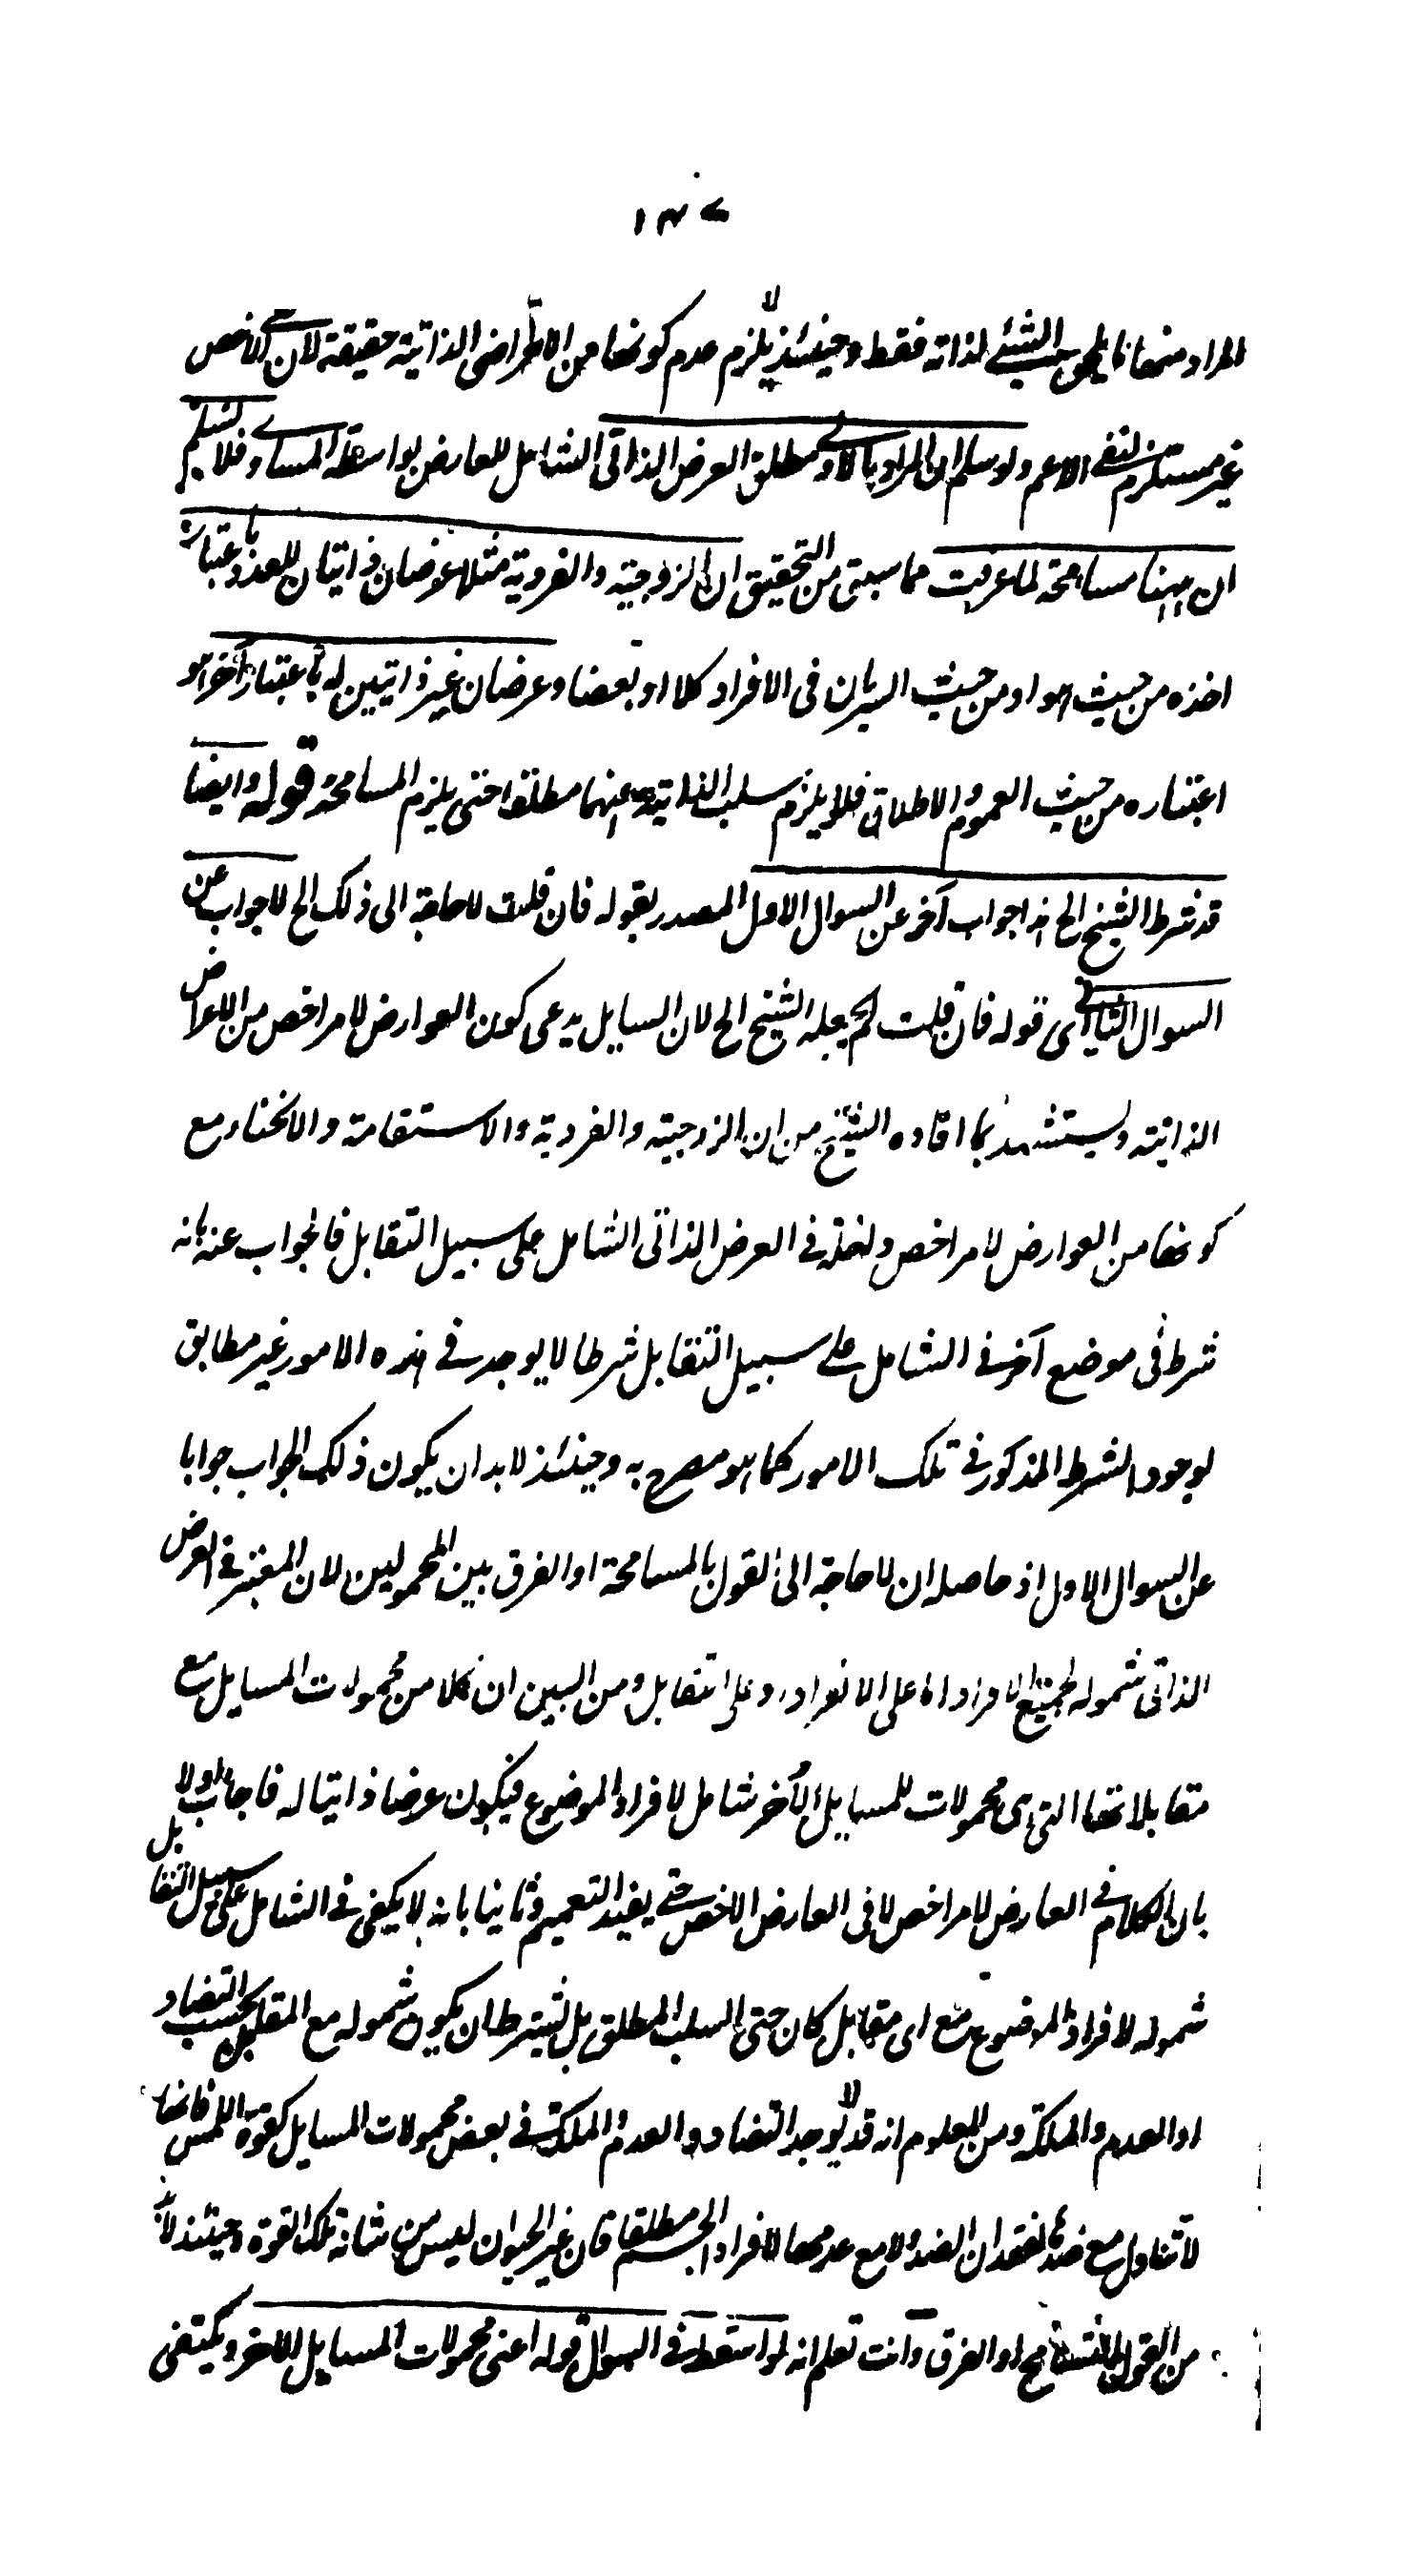 ١٣٧
المراد منها ما يلحق الشئ لذاته فقط وحينئذ لا يلزم عدم كونها من الاعراض الذاتية حقيقة لان نفى الاخص
غير مستلزم لنفى الاعم ولو سلم ان المراد بالاولى مطلق العرض الذاتى الشامل للعارض بواسطة المساوى فلا نسلم
ان ههنا مسامحة لما عرفت مما سبق من التحقيق ان الزوجية والفردية مثلا عرضان ذاتيان للعدد باعتبار
اخذه من حيث هو او من حيث السريان فى الافراد كلا او بعضا وعرضان غير ذاتيين له باعتبار آخر هو
اعتباره من حيث العموم والاطلاق فلا يلزم سلب الذاتية عنهما مطلقا حتى يلزم المسامحة قوله وايضا
قد شرط الشيخ الخ هذا جواب آخر عن السوال الاول المصدر بقوله فان قلت لا حاجة الى ذلك الخ لا جواب عن
السوال الثانى اى قوله فان قلت لم يجعله الشيخ الخ لان السايل يدعى كون العوارض لامر اخص من الاعراض
الذاتية ويستشهد بما افاده الشيخ من ان الزوجية والفردية والاستقامة والانحناء مع
كونها من العوارض لامر اخص داخلة فى العرض الذاتى الشامل على سبيل التقابل فالجواب عنه بانه
شرط فى موضع آخر فى الشامل على سبيل التقابل شرطا لا يوجد فى هذه الامور غير مطابق
لوجود الشرط المذكور فى تلك الامور كما هو مصرح به وحينئذ لا بد ان يكون ذلك الجواب جوابا
عن السوال الاول اذ حاصله ان لا حاجة الى القول بالمسامحة او الفرق بين المحمولين لان المعتبر فى العرض
الذاتى شموله لجميع الافراد اما على الانفراد او على التقابل ومن البين ان كلا من محمولات المسايل مع
مقابلاتها التى هى محمولات للمسايل الآخر شامل لافراد الموضوع فيكون عرضا ذاتيا له فاجاب اولا
بان الكلام فى العارض لامر اخص لا فى العارض الاخص حتى يفيد التعميم وثانيا بانه لا يكفى فى الشامل على سبيل التقابل
شموله لافراد الموضوع مع اى مقابل كان حتى السلب المطلق بل يشترط ان يكون شموله مع المقابل بحسب التضاد
او العدم والملكة ومن المعلوم انه قد لا يوجد التضاد والعدم والملكة فى بعض محمولات المسايل كقوة اللمس فانها
لا تتناول مع ضدها لفقدان الضد ولا مع عدمها لافراد الجسم مطلقا فان غير الحيوان ليس من شانه تلك القوة وحينئذ لا بد
من القول بالتسامح او الفرق وانت تعلم انه لو اسقط فى السوال قوله اعنى محمولات المسايل الاخر ويكتفى